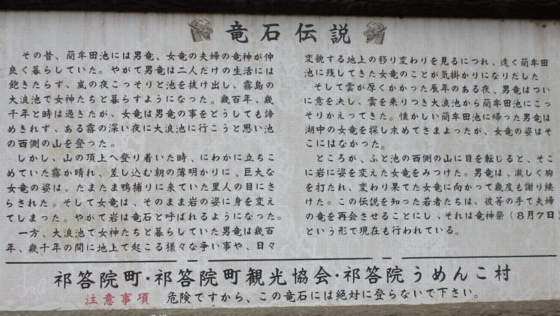 竜石伝説
その昔、藺牟田池には男竜、女竜の夫婦の竜神が仲
良く暮らしていた。やがて男竜は二人だけの生活には
飽きたらず、嵐の夜こっそりと池を抜け出し、霧島の
大浪池で女神たちと暮らすようになった。幾百年、幾
千年と時は過ぎたが、女竜は男竜の事をどうしても諦
めきれず、ある霧の深い夜に大浪池に行こうと思い池
の西側の山を登った。
しかし、山の頂上へ登り着いた時、にわかに立ちこ
めていた霧が晴れ、差し込む朝の薄明かりに、巨大な
女竜の姿は、たまたま鴨捕りに来ていた里人の目にさ
らされた。そして女竜は、そのまま岩の姿に身を変え
てしまった。やがて岩は竜石と呼ばれるようになった。
一方、大浪池で女神たちと暮らしていた男竜は幾百
年、幾千年の間に地上で起こる様々な争い事や、日々
変貌する地上の移り変わりを見るにつれ、遠く藺牟田
池に残してきた女竜のことが気掛かりになりだした
そして雲が厚くかかった辰年のある夜、男竜はつい
に意を決し、雲を乗りつぎ大浪池から藺牟田池にこっ
そりかえってきた。懐かしい藺牟田池に帰った男竜は
湖中の女竜を探し求めてさまよったが、女竜の姿はそ
こにはなかった。
ところが、ふと池の西側の山に目を転じると、そこ
に岩に姿を変えた女竜をみつけた。男竜は、激しく胸
を打たれ、変わり果てた女竜に向かって幾度も謝り続
けた。この伝説を知った若者たちは、彼等の手で夫婦
の竜を再会させることにし、それは竜神祭(8月7日)
という形で現在も行われている。
祁答院町・祁答院町観光協会・祁答院うめんこ村
注意事項 危険ですから、この竜石には絶対に登らないで下さい。